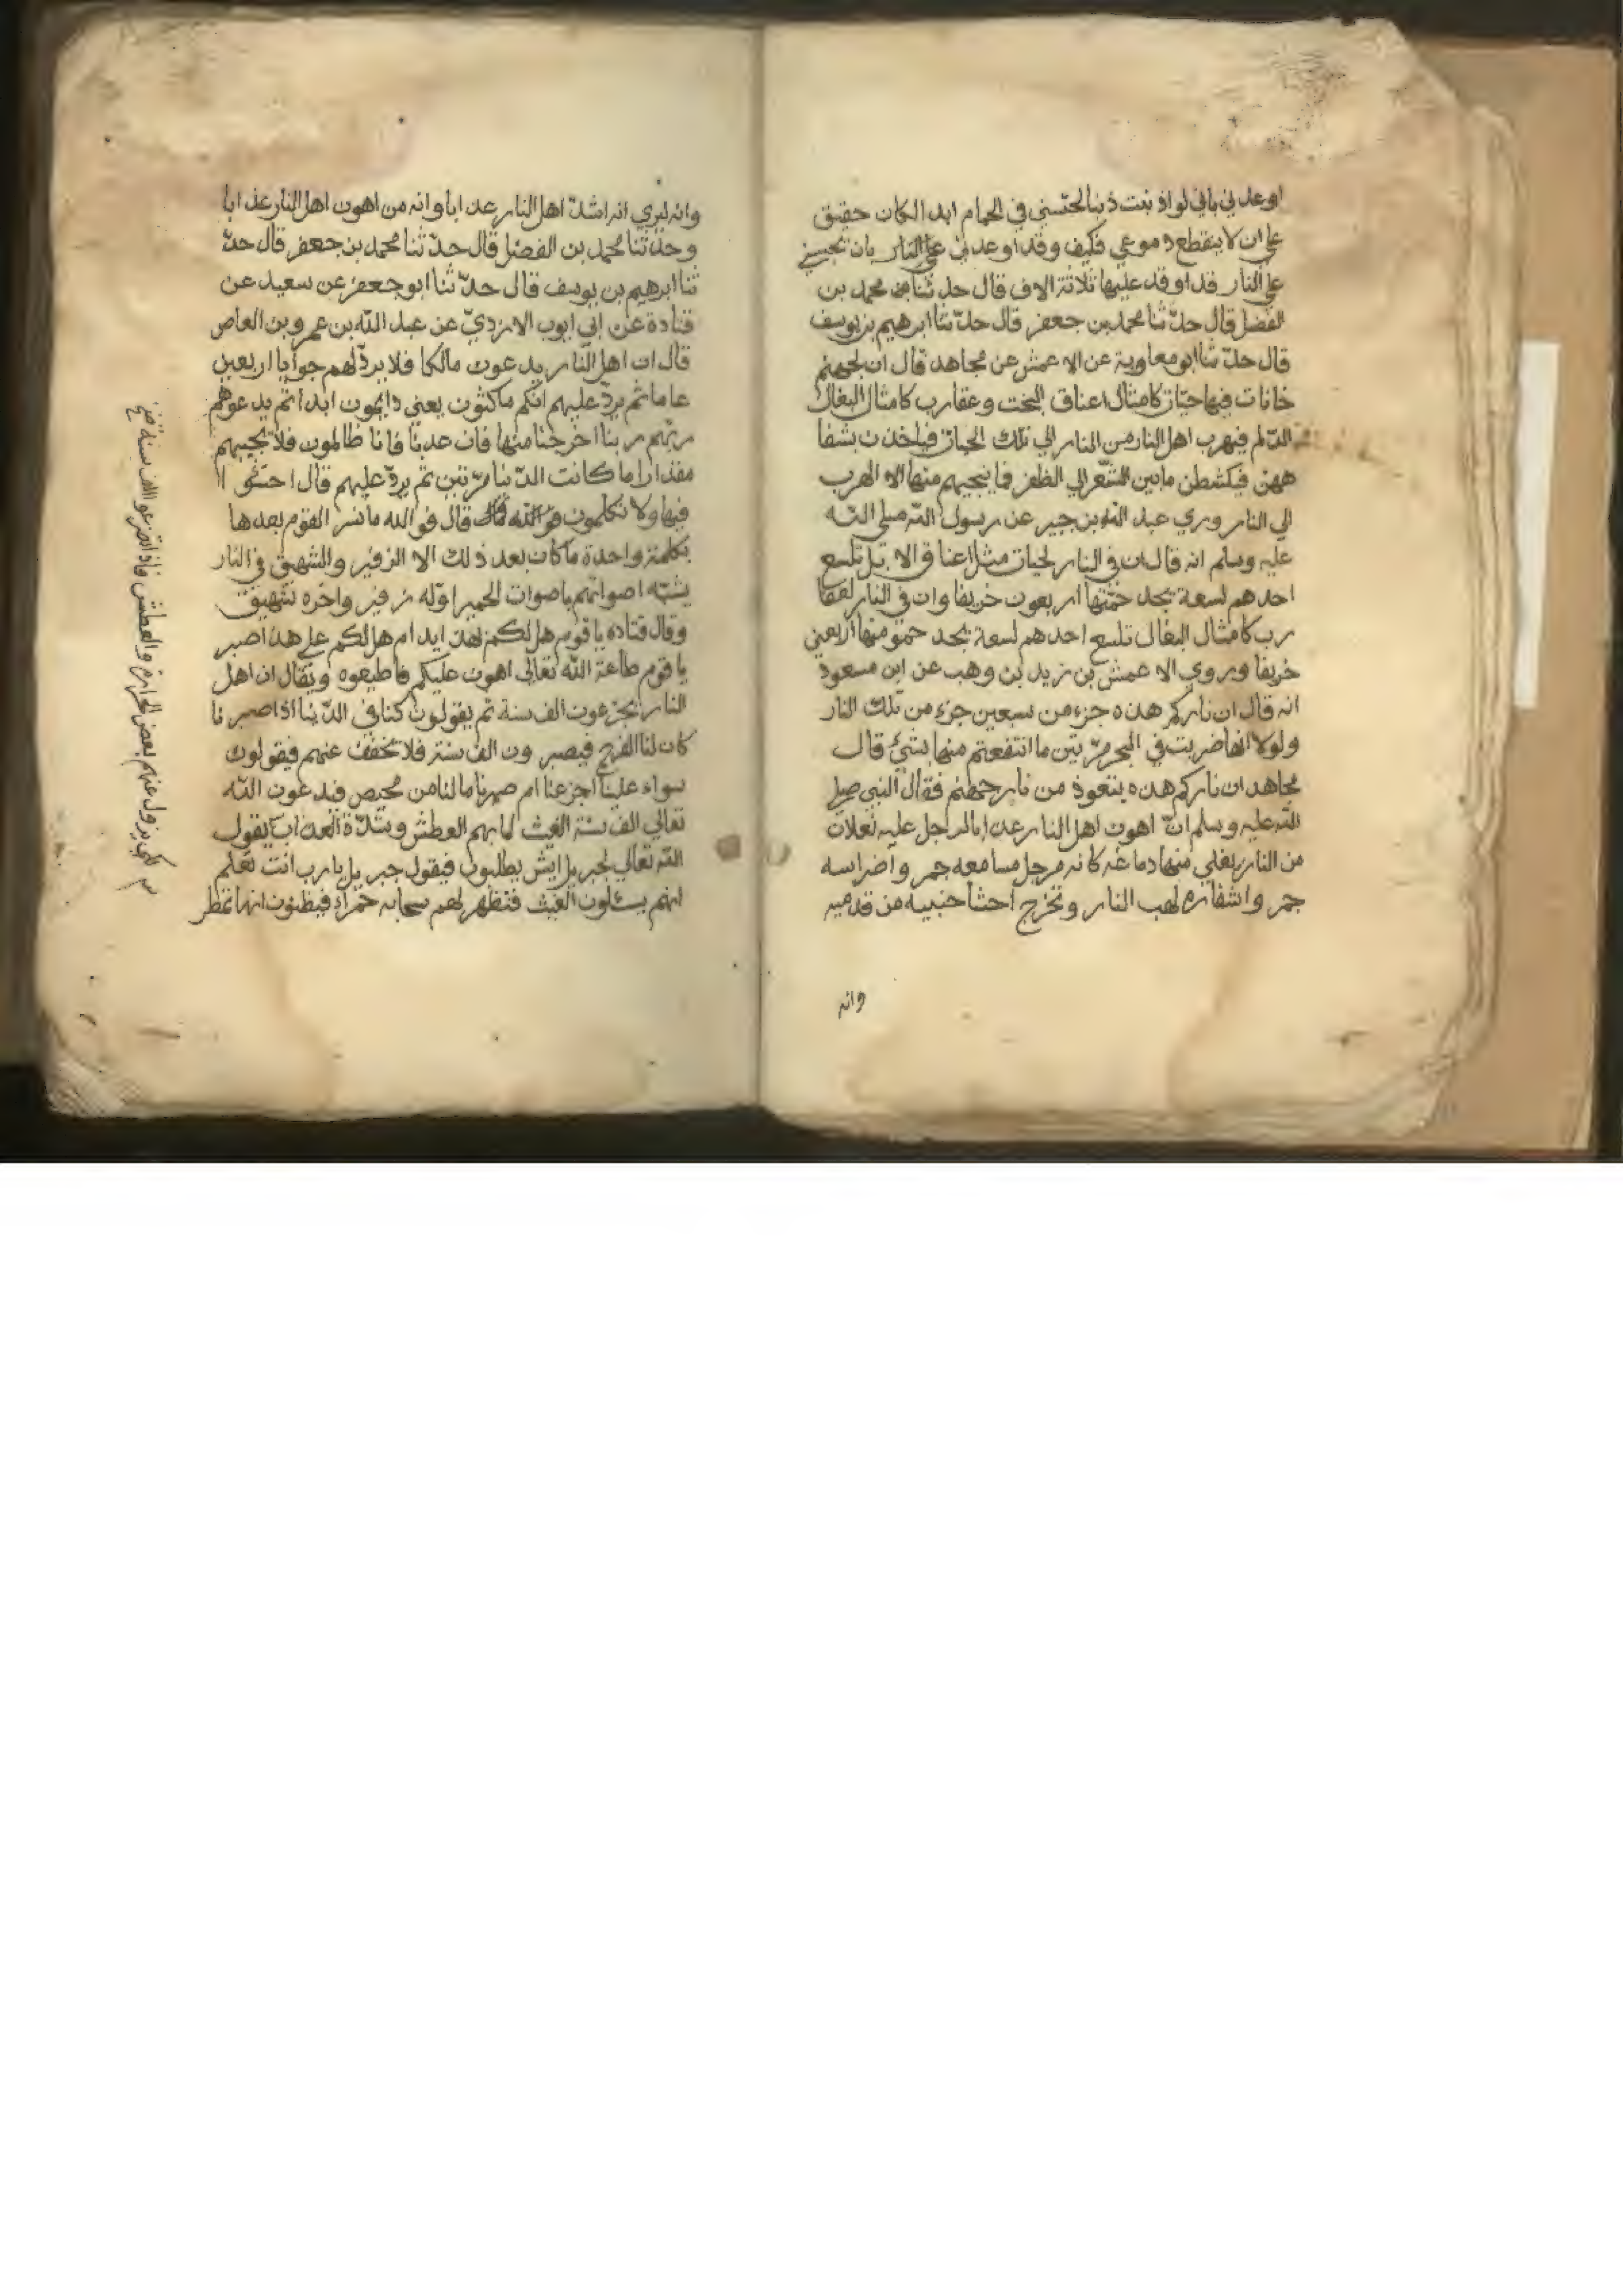 اوعدني باني لو اذنبت ذنبا لحبسني في الحمام ابدا لكان حقيق
علي ان لا ينقطع دموعي فكيف وقد اوعدني علي النار بان يحبسني
علي النار قد اوقد عليها ثلاثة الاف قال حدثنا محمد بن
الفضل قال حدّثنا محمد بن جعفر قال حدّثنا ابرهيم بن يوسف
قال حدّثنا ابو معاوية عن الاعمش عن مجاهد قال ان لجهنم
خانات فيها حيّات كامثال اعناق البخت وعقارب كامثال البغال
الدّلم فيهرب اهل النار من النار الي تلك الحيات فياخذن بشفا
ههن فيكشطن ما بين الشّعر الي الظفر فما ينجيهم منها الا الهرب
الي النار وروي عبد الله بن جبير عن رسول الله صلي الله
عليه وسلم انه قال ان في النار لحيات مثل اعناق الابل تلسع
احدهم لسعة يجد حمّتها اربعون خريفا وان في النار لعقا
رب كامثال البغال تلسع احدهم لسعة يجد حموتها اربعين
خريفا وروي الاعمش بن زيد بن وهب عن ابن مسعود
انه قال ان ناركم هذه جزء من سبعين جزء من تلك النار
ولولا انها ضربت في البحر مرّتين ما انتفعتم منها بشيء قال
مجاهد ان ناركم هذه يتعوذ من نار جهنم فقال النبي صلي
الله عليه وسلم انّ اهون اهل النار عذابا لرجل عليه نعلان
من النار يغلي منها دماغه كانه مرجل مسامعه جمر واضراسه
جمر واشفاره لهب النار وتخرج احشا جنبيه من قدميه
وانه
وانه ليري انه اشدّ اهل النار عذابا وانه من اهون اهل النار عذابا
وحدّثنا محمد بن الفضل قال حدّثنا محمد بن جعفر قال حدّ
ثنا ابرهيم بن يوسف قال حدّثنا ابو جعفر عن سعيد عن
قتادة عن ابي ايوب الازديّ عن عبد الله بن عمرو بن العاص
قال ان اهل النار يدعون مالكا فلا يردّ لهم جوابا اربعين
عاما ثم يردّ عليهم انكم ماكثون يعني دايمون ابدا ثم يدعوهم
ربّهم ربنا اخرجنا منها فان عدنا فانا ظالمون فلا يجيبهم
مقدارا ما كانت الدّنيا مرّتين ثم يردّ عليهم قال اخسئوا
فيها ولا تكلمون قال فو الله ما نسر القوم بعدها
بكلمة واحدة ما كان بعد ذلك الا الزفير والشهيق في النار
يشبّه اصواتهم باصوات الحمير اوّله زفير واخره شهيق
وقال قتاده يا قوم هل لكم بهذا يد ام هل لكم علي هذا صبر
يا قوم طاعة الله تعالي اهون عليكم فاطيعوه ويقال ان اهل
النار يجزعون الف سنة ثم يقولون كنا في الدّنيا اذا صبرنا
كان لنا الفرج فيصبرون الف سنة فلا تخفف عنهم فيقولون
سواء علينا اجزعنا ام صبرنا ما لنا من محيص فيدعون الله
تعالي الف سنة الغيث لما بهم العطش وشدّة العذاب يقول
الله تعالي لجبريل ايش يطلبون فيقول جبريل يا رب انت تعلم
انهم يسئلون الغيث فتظهر لهم سحابه حمراء فيظنون انها تمطر
لكي يزول عنهم بعض الحرارة والعطش فاذا تضرعوا الف سنة